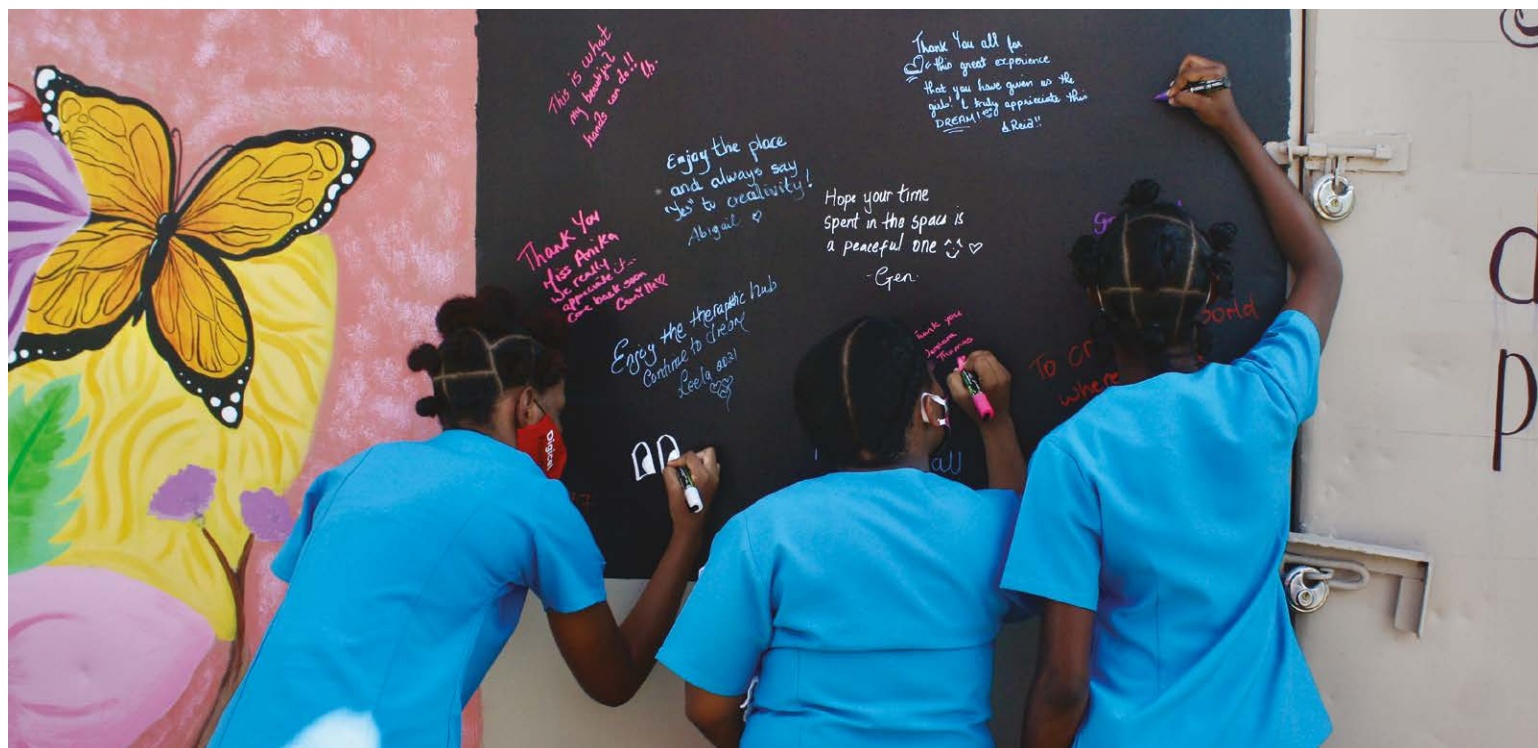 This is what
my beautiful
hands can do!!
Thank You all for
this great experience
that you have given us the
girls! I truly appriciate this
DREAM!
Enjoy the place
and always say
"Yes" to creativity!
Abigail
Hope your time
spent in the space is
a peaceful one
-Gen-
Thank You
Miss Anika
we really
appriciate it...
Come back soon
Camille
Enjoy the theraptic hub
Continue to dream
Leela 2021
thank you
Thomas
world
To
where
all
Digicel